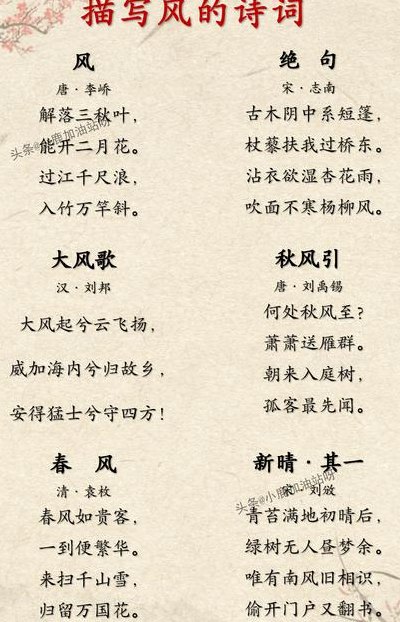 描写风的诗词
风
唐·李峤
解落三秋叶，
能开二月花。
过江千尺浪，
入竹万竿斜。
头条@小鹿加油站呀
绝 句
宋·志南
古木阴中系短篷，
杖藜扶我过桥东。
沾衣欲湿杏花雨，
吹面不寒杨柳风。
大风歌
汉·刘邦
大风起兮云飞扬，
威加海内兮归故乡，
安得猛士兮守四方！
秋风引
唐·刘禹锡
何处秋风至？
萧萧送雁群。
朝来入庭树，
孤客最先闻。
春 风
清·袁枚
春风如贵客，
一到便繁华。
来扫千山雪，
归留万国花。
新晴·其一
宋·刘攽
青苔满地初晴后，
绿树无人昼梦余。
唯有南风旧相识，
偷开门户又翻书。
头条@小鹿加油站呀